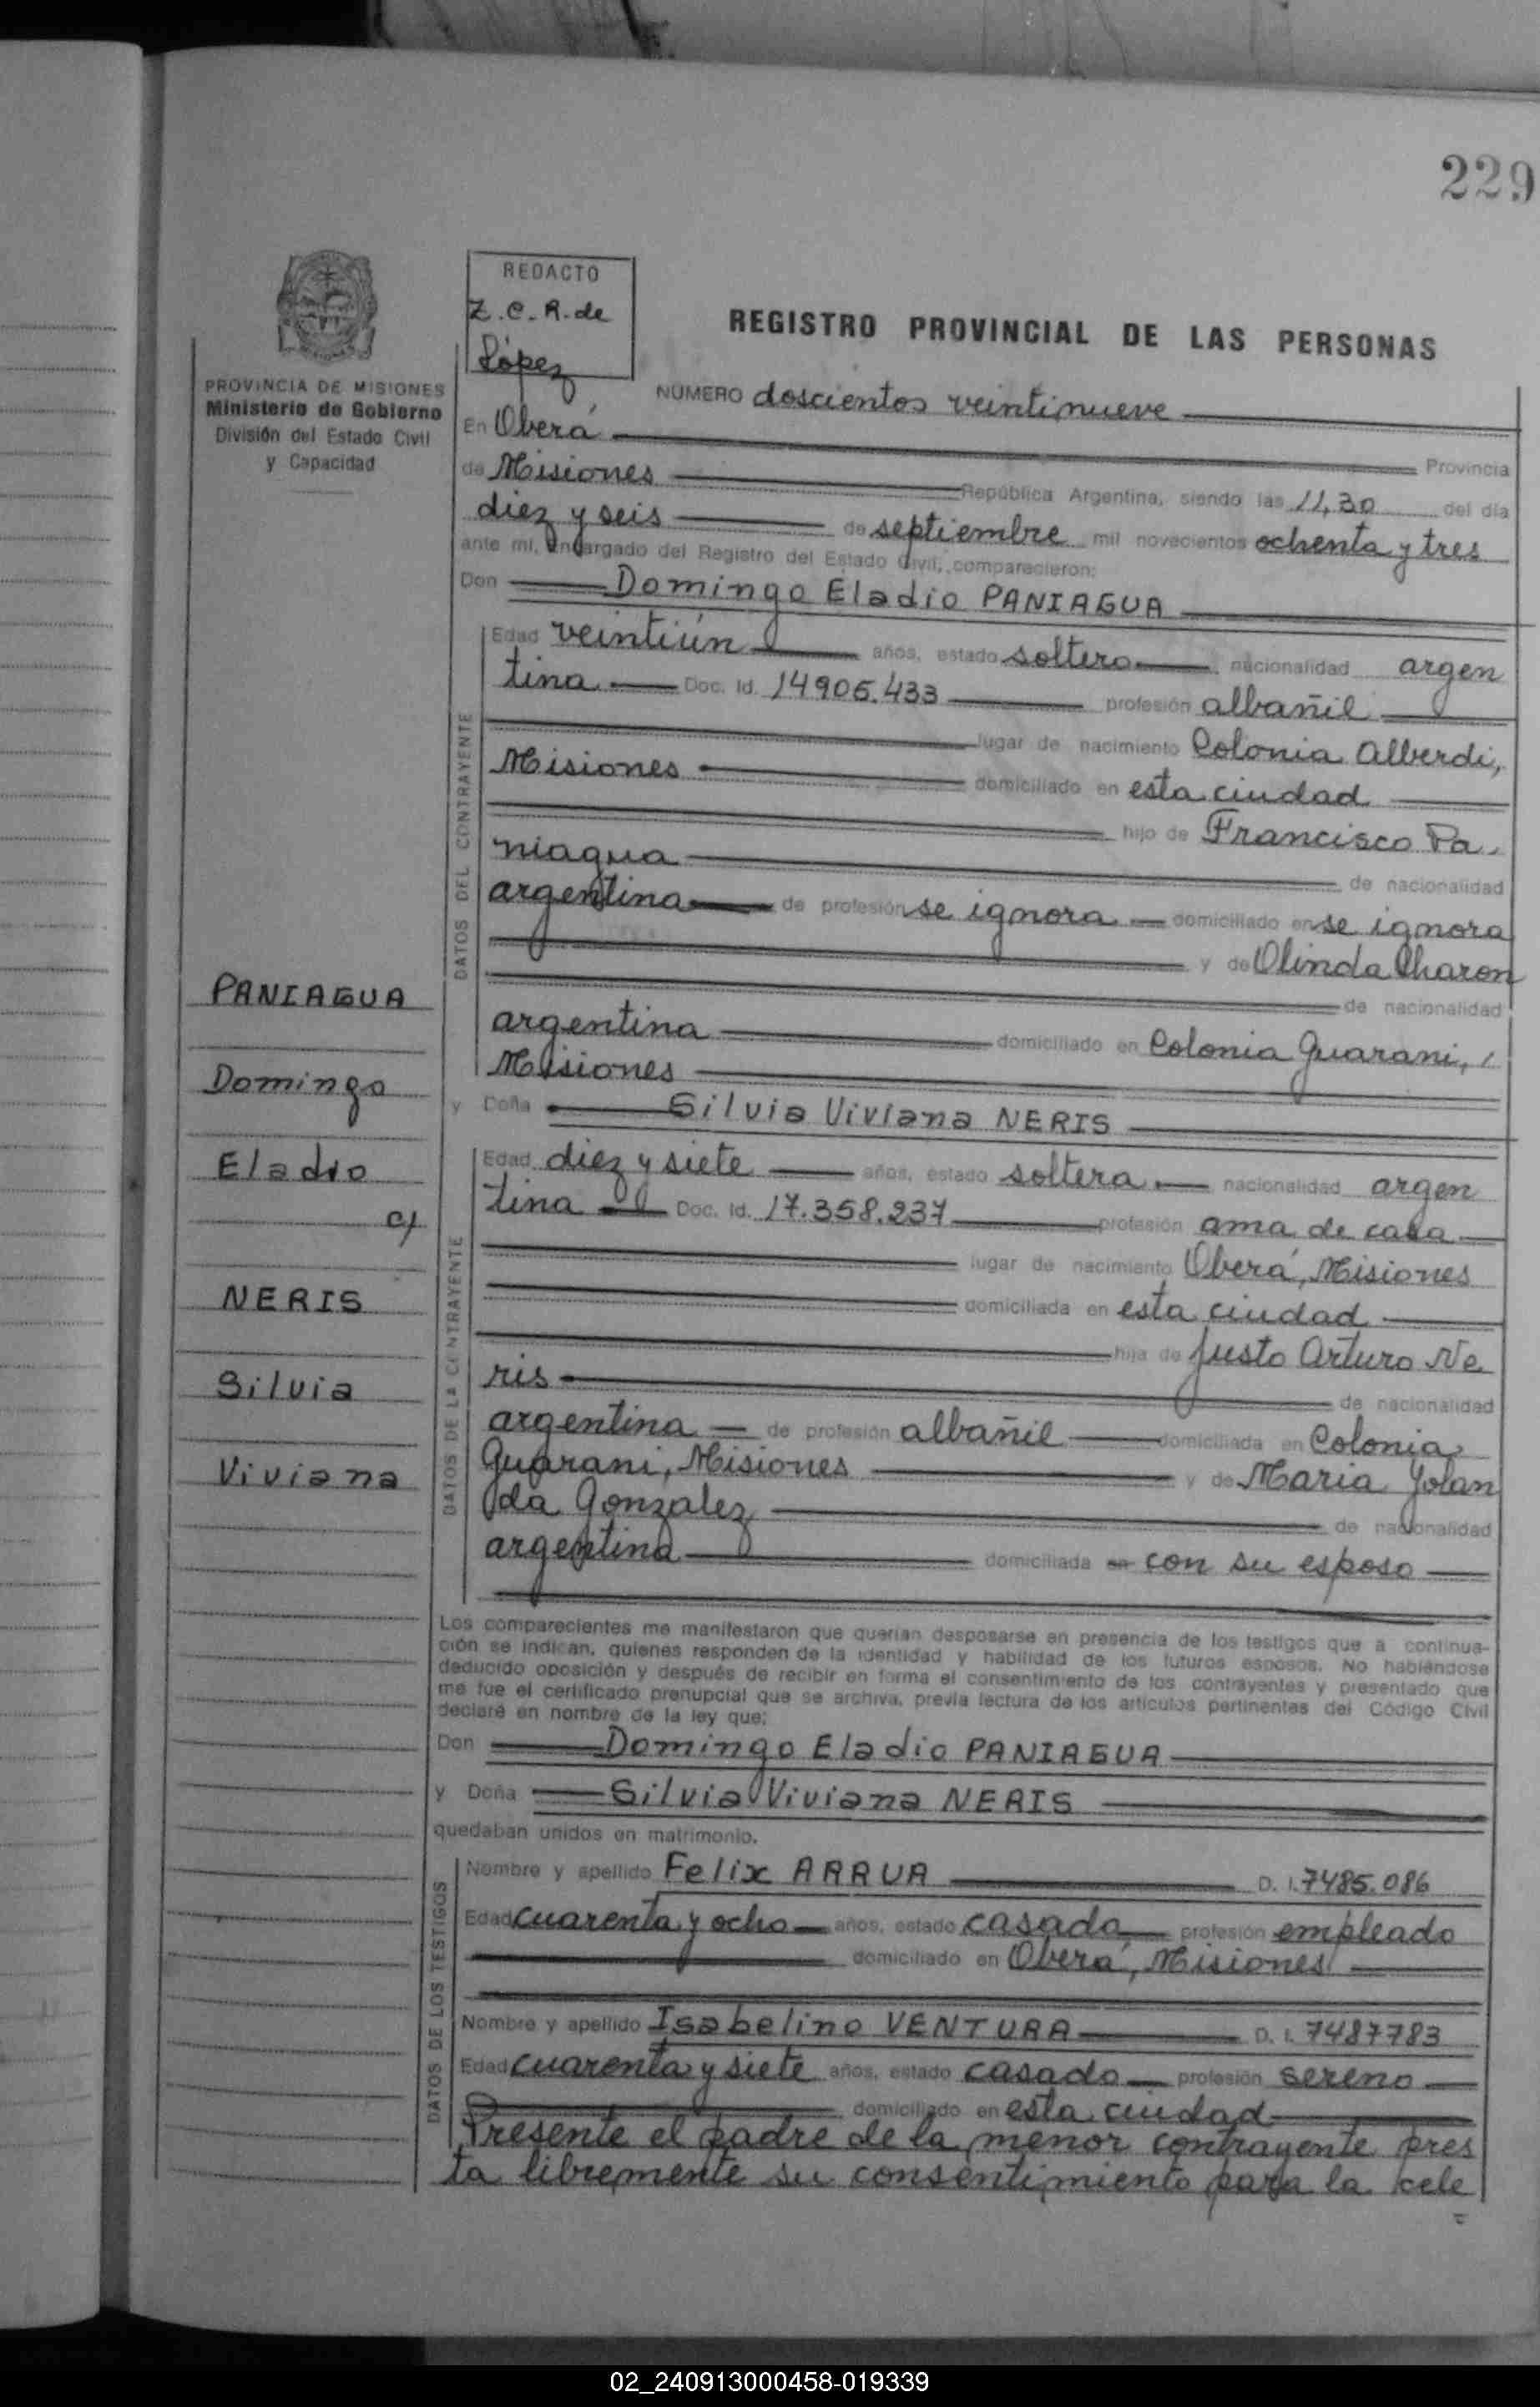 229
REDACTO
Z.C.R. de
López
REGISTRO PROVINCIAL DE LAS PERSONAS
PROVINCIA DE MISIONES
Ministerio de Gobierno
División del Estado Civil
y Capacidad
NUMERO doscientos veintinueve
En Oberá
Provincia
de Misiones República Argentina, siendo las 11,30 del día
diez y seis de septiembre mil novecientos ochenta y tres
ante mi, Encargado del Registro del Estado Civil, comparecieron:
Don Domingo Eladio PANIAGUA
DATOS DEL CONTRAYENTE
Edad veintiún años, estado soltero nacionalidad argen
tina Doc. Id. 14905.433 profesión albañil
lugar de nacimiento Colonia Alberdi,
Misiones domiciliado en esta ciudad
hijo de Francisco Pa
niagua de nacionalidad
argentina de profesión se ignora domiciliado en se ignora
y de Olinda Charon
de nacionalidad
argentina domiciliado en Colonia Guarani,
Misiones
y Doña Silvia Viviana NERIS
DATOS DE LA CONTRAYENTE
Edad diez y siete años, estado soltera nacionalidad argen
tina Doc. Id. 17.358.237 profesión ama de casa
lugar de nacimiento Oberá, Misiones
domiciliada en esta ciudad
hija de Justo Arturo Ne
ris de nacionalidad
argentina de profesión albañil domiciliada en Colonia
Guarani, Misiones y de Maria Yolan
da Gonzalez de nacionalidad
argentina domiciliada en con su esposo
PANIAGUA
Domingo
Eladio
c/
NERIS
Silvia
Viviana
Los comparecientes me manifestaron que querían desposarse en presencia de los testigos que a continua-
ción se indican, quienes responden de la identidad y habilidad de los futuros esposos. No habiéndose
deducido oposición y después de recibir en forma el consentimiento de los contrayentes y presentado que
me fue el certificado prenupcial que se archiva, previa lectura de los artículos pertinentes del Código Civil
declaré en nombre de la ley que:
Don Domingo Eladio PANIAGUA
y Doña Silvia Viviana NERIS
quedaban unidos en matrimonio.
DATOS DE LOS TESTIGOS
Nombre y apellido Felix ARRUA D. I. 7485.086
Edad cuarenta y ocho años, estado casado profesión empleado
domiciliado en Oberá, Misiones
Nombre y apellido Isabelino VENTURA D. I. 7487783
Edad cuarenta y siete años, estado casado profesión sereno
domiciliado en esta ciudad
Presente el padre de la menor contrayente pres
ta libremente su consentimiento para la cele
02_240913000458-019339